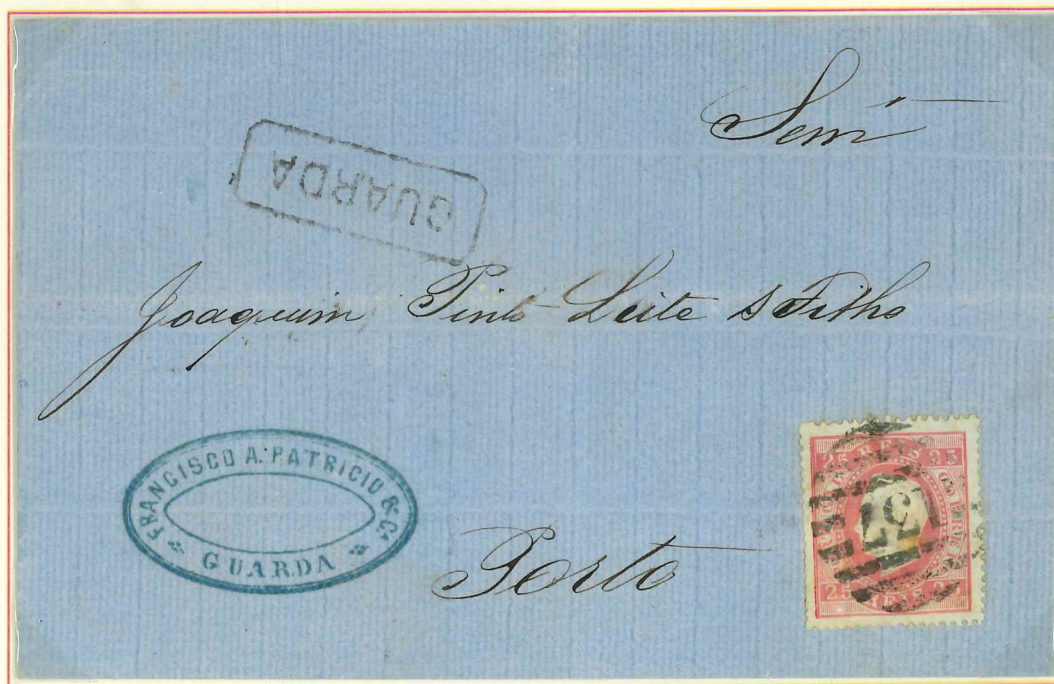 GUARDA
Joaquim Pinto Leite & Filho
FRANCISCO A. PATRICIO & Cª
GUARDA
Porto
25 REIS 25
CORREIO
57
25 REIS 25